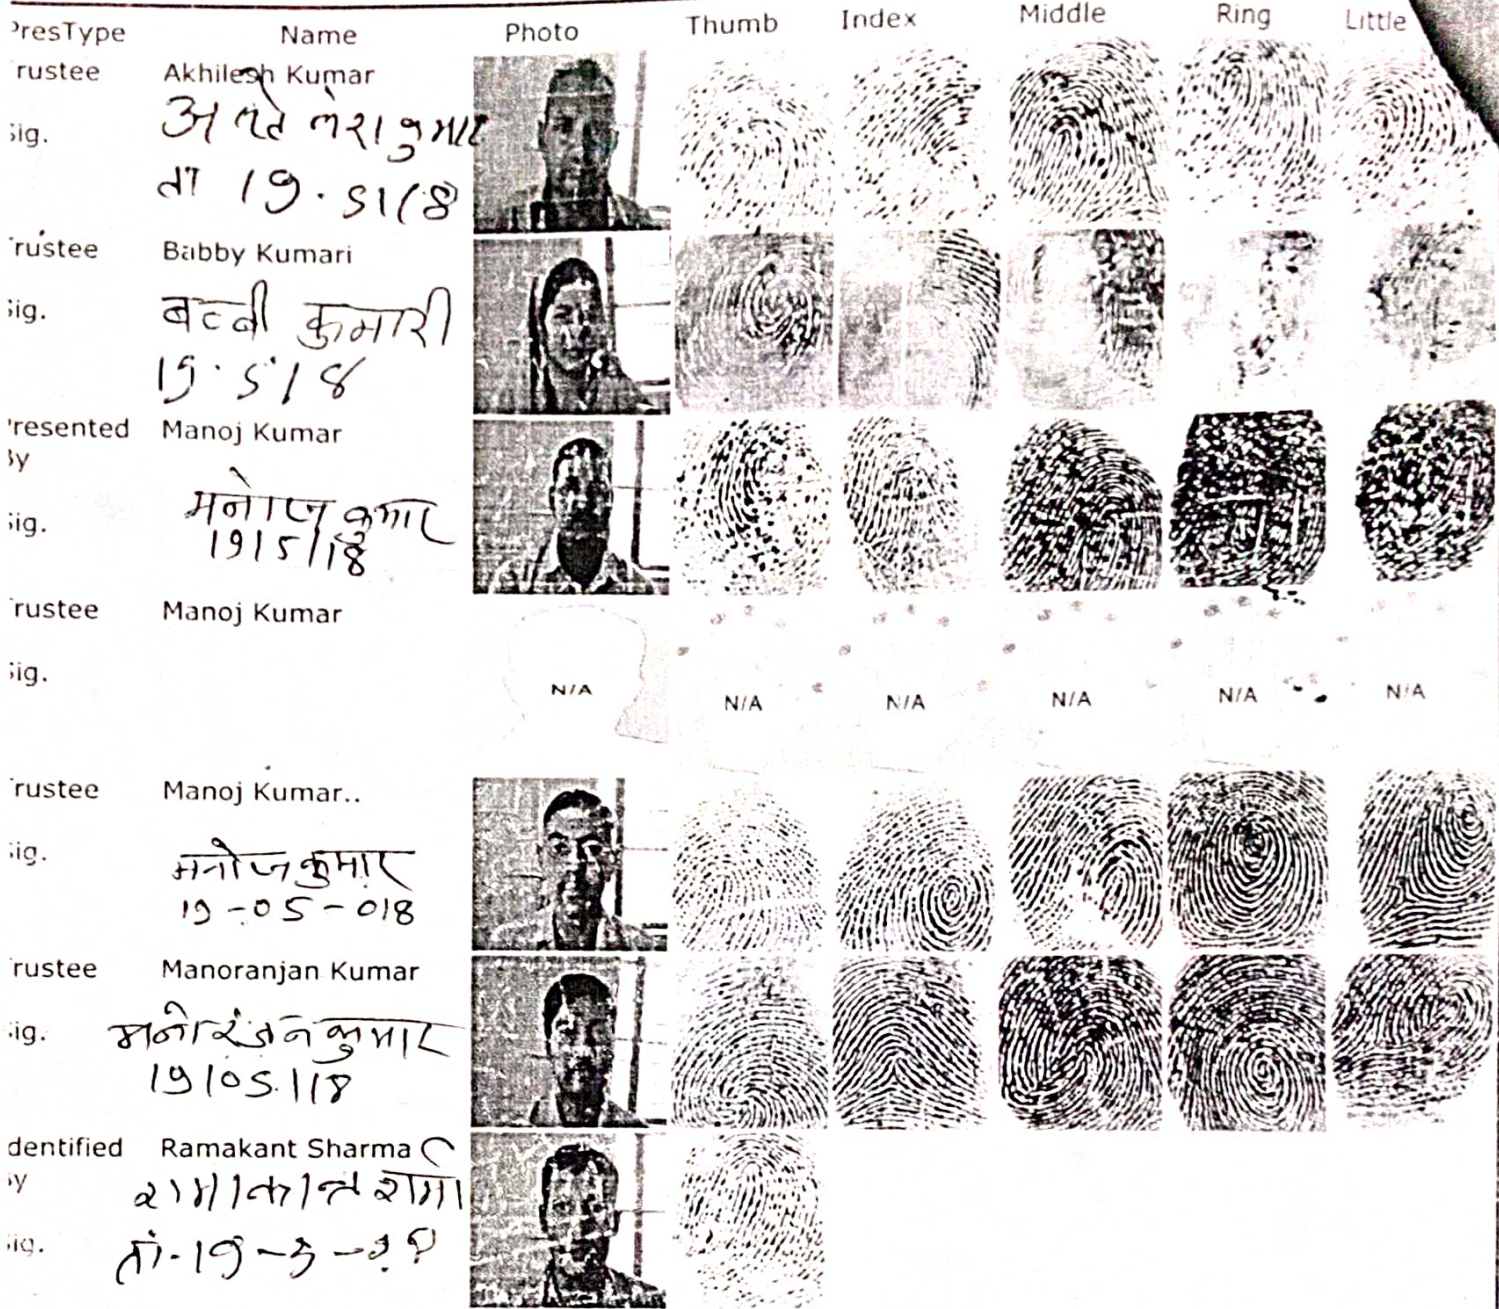 PresType Name Photo Thumb Index Middle Ring Little
rustee Akhilesh Kumar
Sig. कुमार
ता 19.5/18
rustee Babby Kumari
Sig. बब्बी कुमारी
19.5/18
Presented Manoj Kumar
By
Sig. मनोज कुमार
19/5/18
rustee Manoj Kumar
Sig. N/A N/A N/A N/A N/A N/A
rustee Manoj Kumar..
Sig. मनोज कुमार
19-05-018
rustee Manoranjan Kumar
Sig. मनोरंजन कुमार
19/05/18
dentified Ramakant Sharma
By रामाकान्त शर्मा
Sig. ता.19-5-